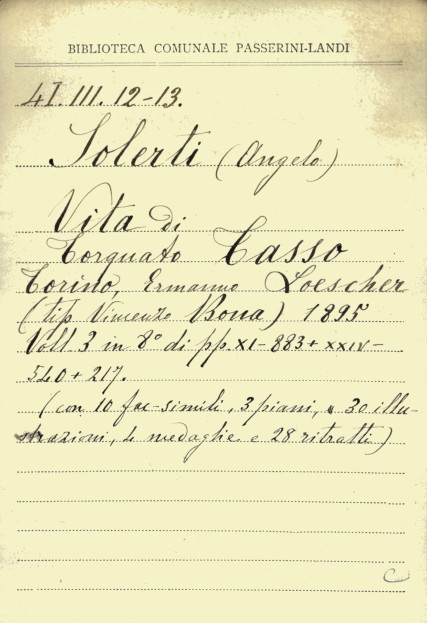 BIBLIOTECA COMUNALE PASSERINI-LANDI
4I. III. 12-13.
Solerti (Angelo)
Vita di
Torquato Tasso
Torino, Ermanno Loescher
(tip Vincenzo Bona) 1895
Voll 3 in 8° di pp. XI-883+XXIV-
540+217.
(con 10 fac-simili, 3 piani, 30 illu-
strazioni, 4 medaglie e 28 ritratti)
C